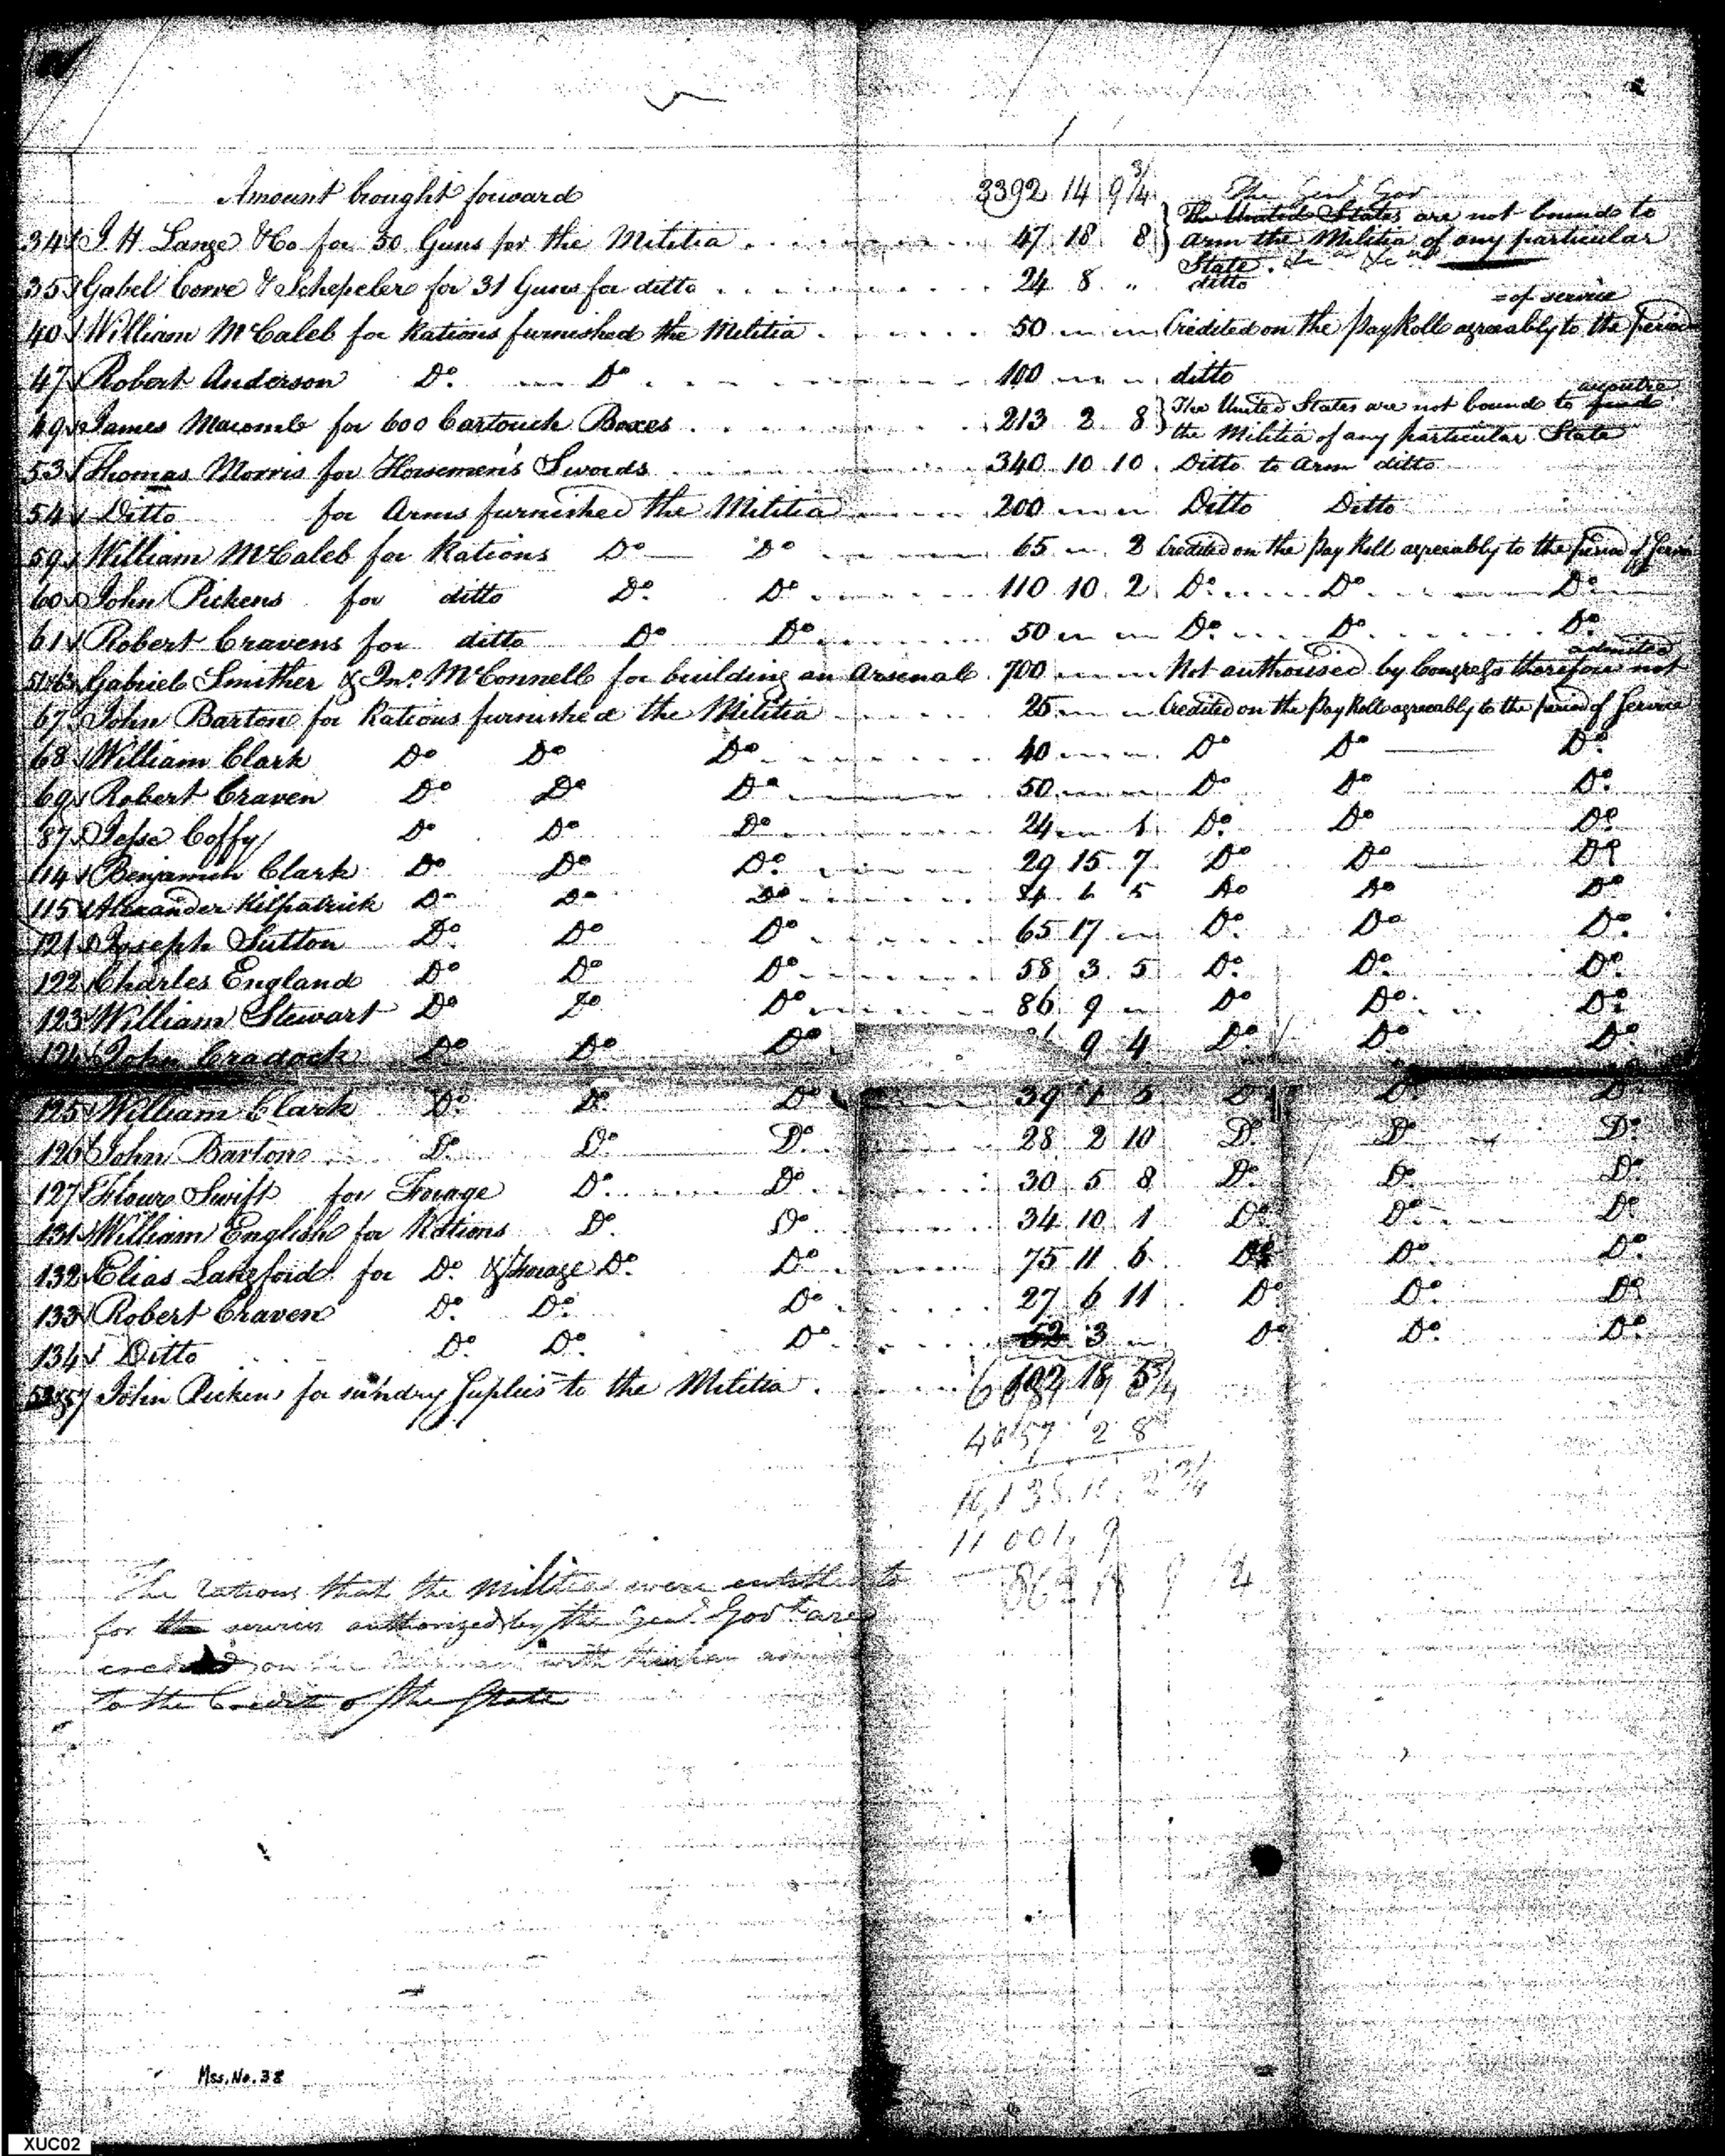 Amount brought forward 3392 14 9 3/4 The Genl Gov
34 J. H. Lange & Co for 50 Guns for the Militia 47 18 8 } The United States are not bound to
arm the Militia of any particular
State. &c &c
35 Gabel Corre & Schepeler for 31 Guns for ditto 24 8 " ditto
= of service
40 William McCaleb for Rations furnished the Militia 50 " " Credited on the Pay Roll agreeably to the period
47 Robert Anderson Do. Do 100 " " ditto
accoutre
49 James Macomb for 600 Cartouch Boxes 213 2 8 } The United States are not bound to
the Militia of any particular State
53 Thomas Morris for Horsemen's Swords 340 10 10 Ditto to Arm ditto
54 Ditto for Arms furnished the Militia 200 " " Ditto Ditto
59 William McCaleb for Rations Do Do 65 " 2 Credited on the Pay Roll agreeably to the period of Service
60 John Pickens for ditto Do. Do 110 10 2 Do. Do Do
61 Robert Cravens for ditto Do Do 50 " " Do. Do. Do.
admitted
Gabriel Smither & Jno. McConnell for building an Arsenal 700 " " Not authorised by Congress therefore not
67 John Barton for Rations furnished the Militia 25 " " Credited on the Pay Roll agreeably to the period of Service
68 William Clark Do Do Do 40 " " Do Do Do
69 Robert Craven Do Do Do 50 " " Do Do Do
87 Jesse Coffy Do Do Do 24 " 1 Do. Do Do
114 Benjamin Clark Do Do Do. 29 15 7 Do Do Do
115 Alexander Kilpatrick Do Do Do 6 5 Do Do Do
121 Joseph Sutton Do. Do Do 65 17 " Do. Do Do.
122 Charles England Do Do Do 58 3 5 Do. Do. Do.
123 William Stewart Do Do Do 86 9 " Do Do. Do
124 John Cradock Do Do Do 9 4 Do. Do Do.
125 William Clark Do. Do. Do 39 1 5 Do Do Do
126 John Barton Do. Do. Do. 28 2 10 Do. Do. Do.
127 Flower Swift for Forage Do. Do. 30 5 8 Do. Do. Do.
131 William English for Rations Do. Do. 34 10 1 Do Do. Do.
132 Elias Langford for Do. & Forage Do. Do 75 11 6 Do Do. Do.
133 Robert Craven Do. Do. Do 27 6 11 Do. Do. Do
134 Ditto Do. Do. Do 52 3 " Do Do. Do
John Pickens for sundry Suplies to the Militia
2 8
The rations that the militia were entitled to
for the services authorized by the Genl. Govt are
on with
to the Credit of the State
Mss. No. 38
XUC02